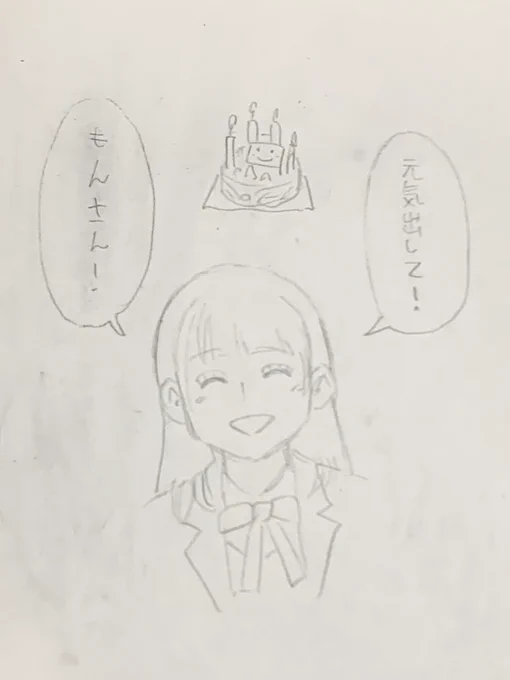 元気出して!
もんさんー!